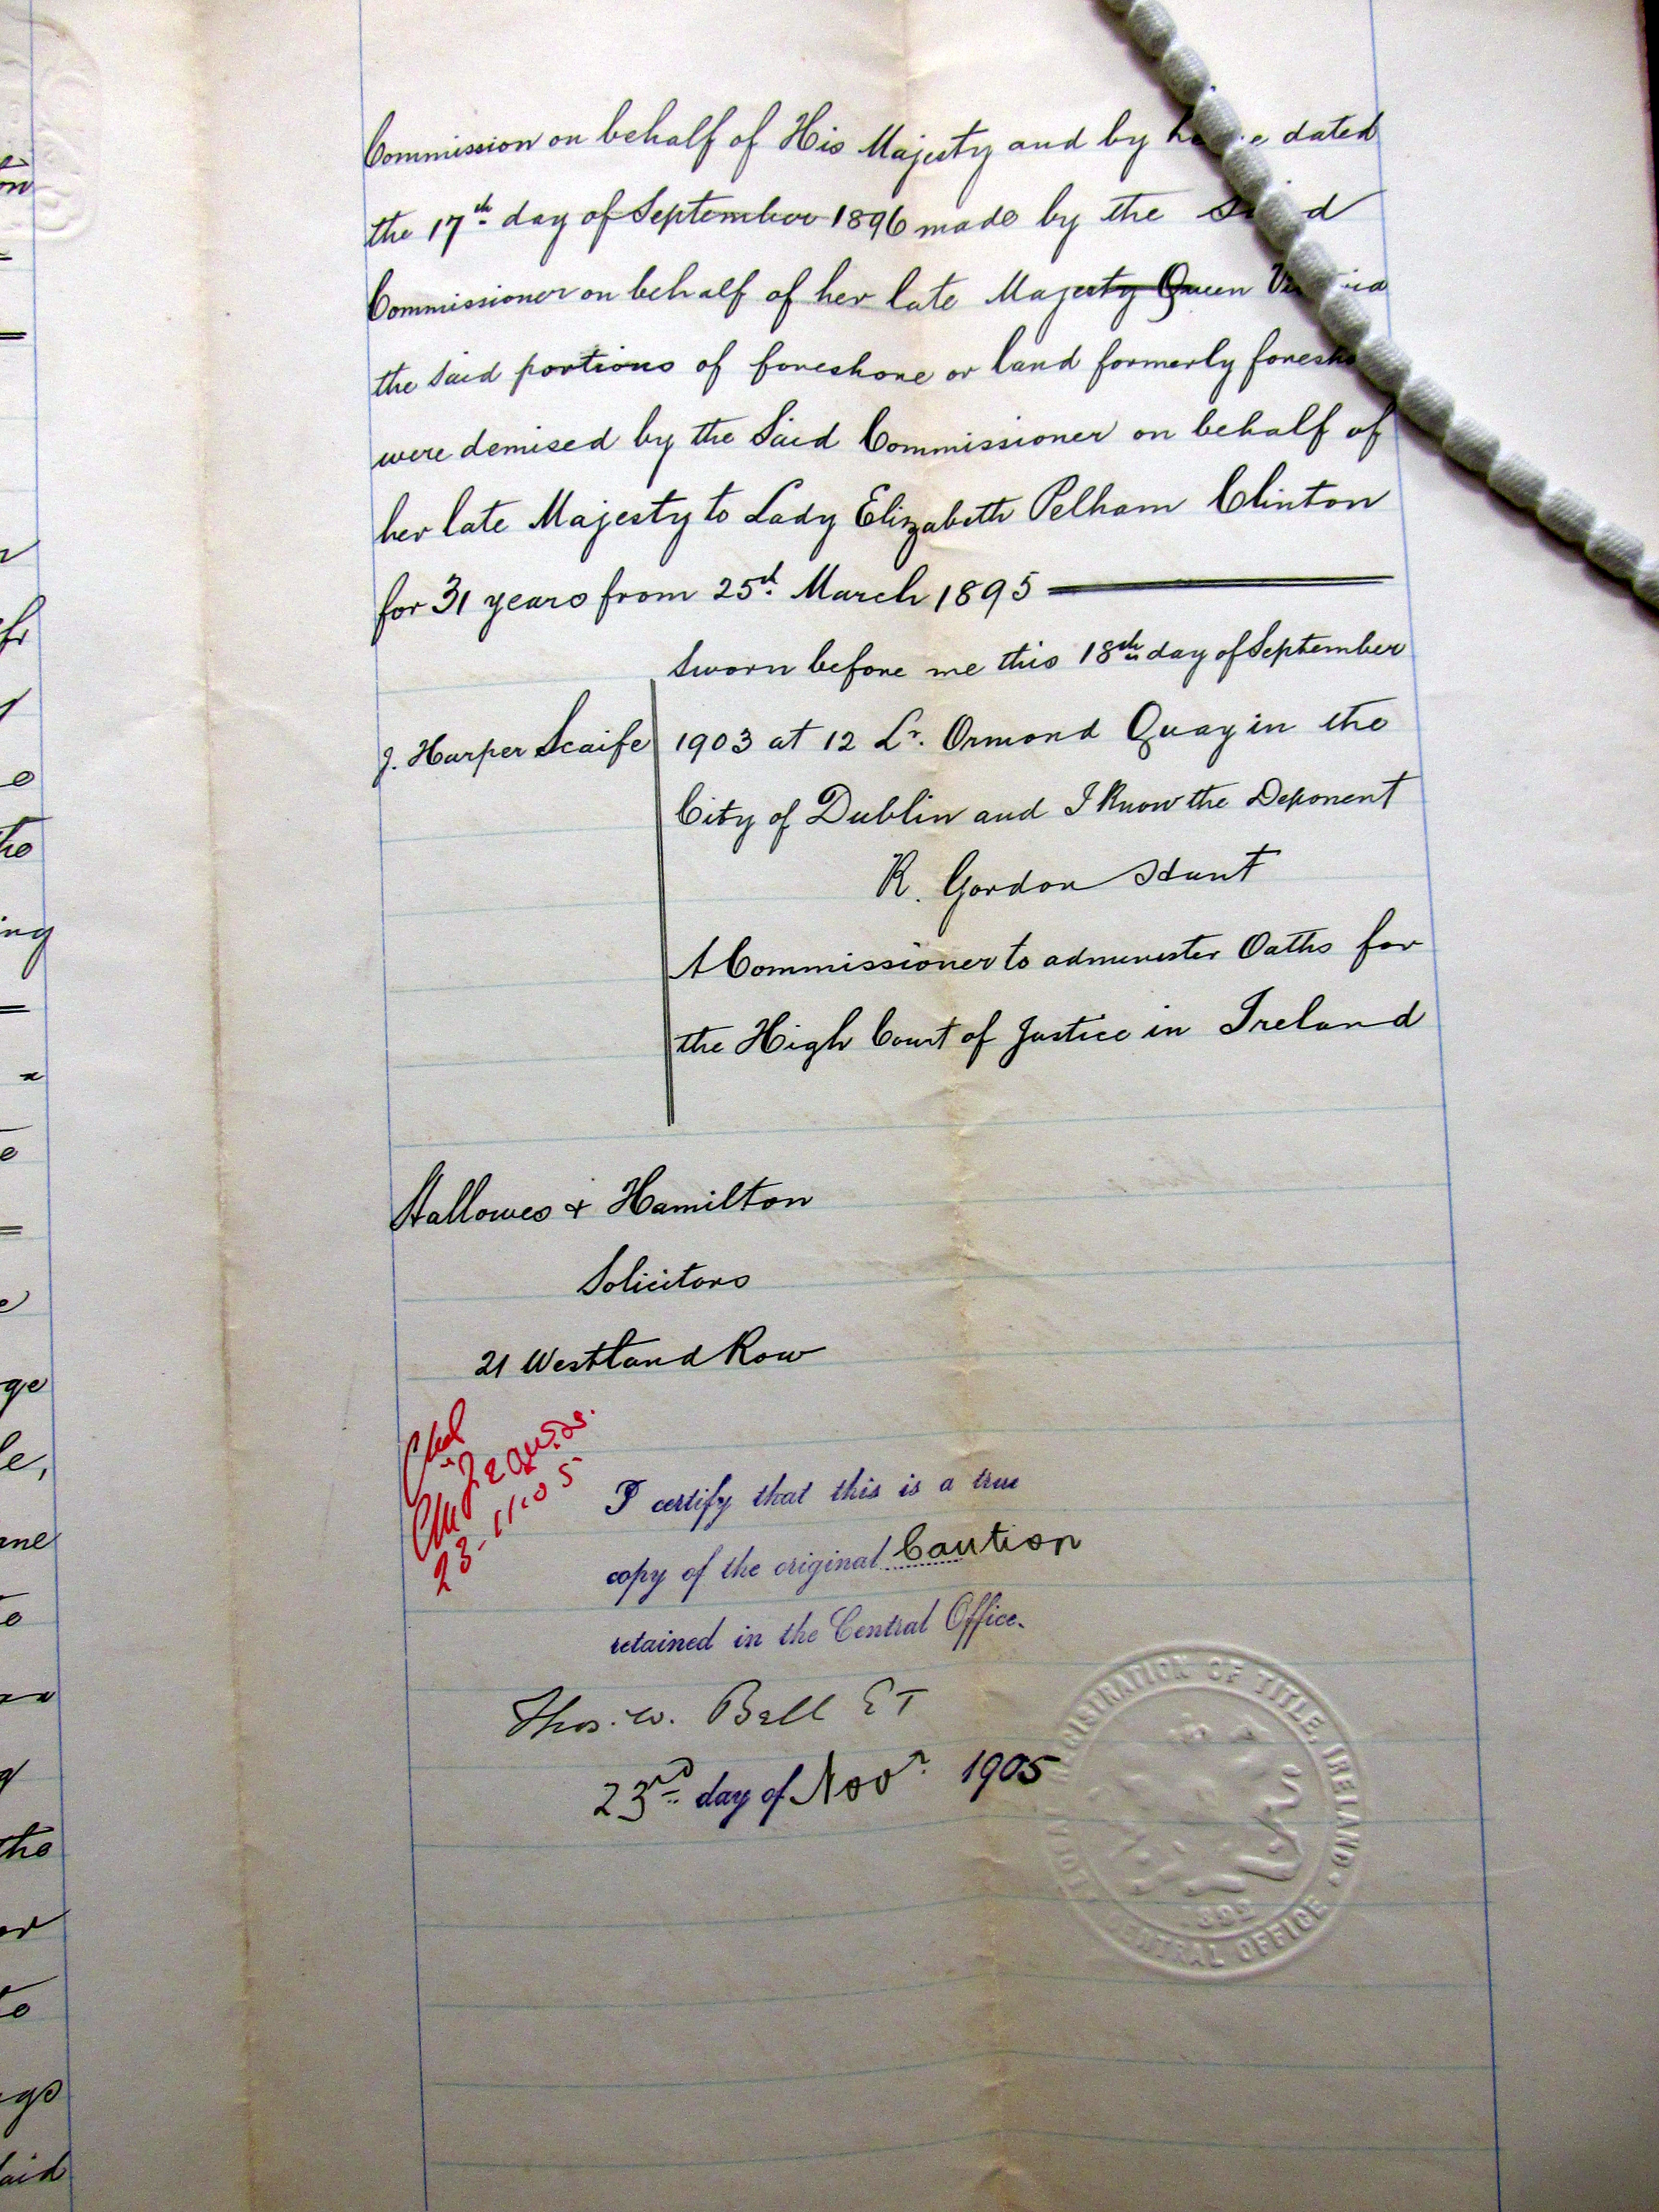 Commission on behalf of His Majesty and by dated
the 17th day of September 1896 made by the said
Commissioner on behalf of her late Majesty Queen Victoria
the said portions of foreshore or land formerly foresho
were demised by the said Commissioner on behalf of
her late Majesty to Lady Elizabeth Pelham Clinton
for 31 years from 25th March 1895
Sworn before me this 18th day of September
J. Harper Scaife
1903 at 12 Lr. Ormond Quay in the
City of Dublin and I know the Deponent
R. Gordon Hunt
A Commissioner to administer Oaths for
the High Court of Justice in Ireland
Hallowes & Hamilton
Solicitors
21 Westland Row
23-11-05
I certify that this is a true
copy of the original Caution
retained in the Central Office.
Thos. W. Bell ET
23rd day of Novr. 1905
REGISTRATION OF TITLE, IRELAND
1892
CENTRAL OFFICE